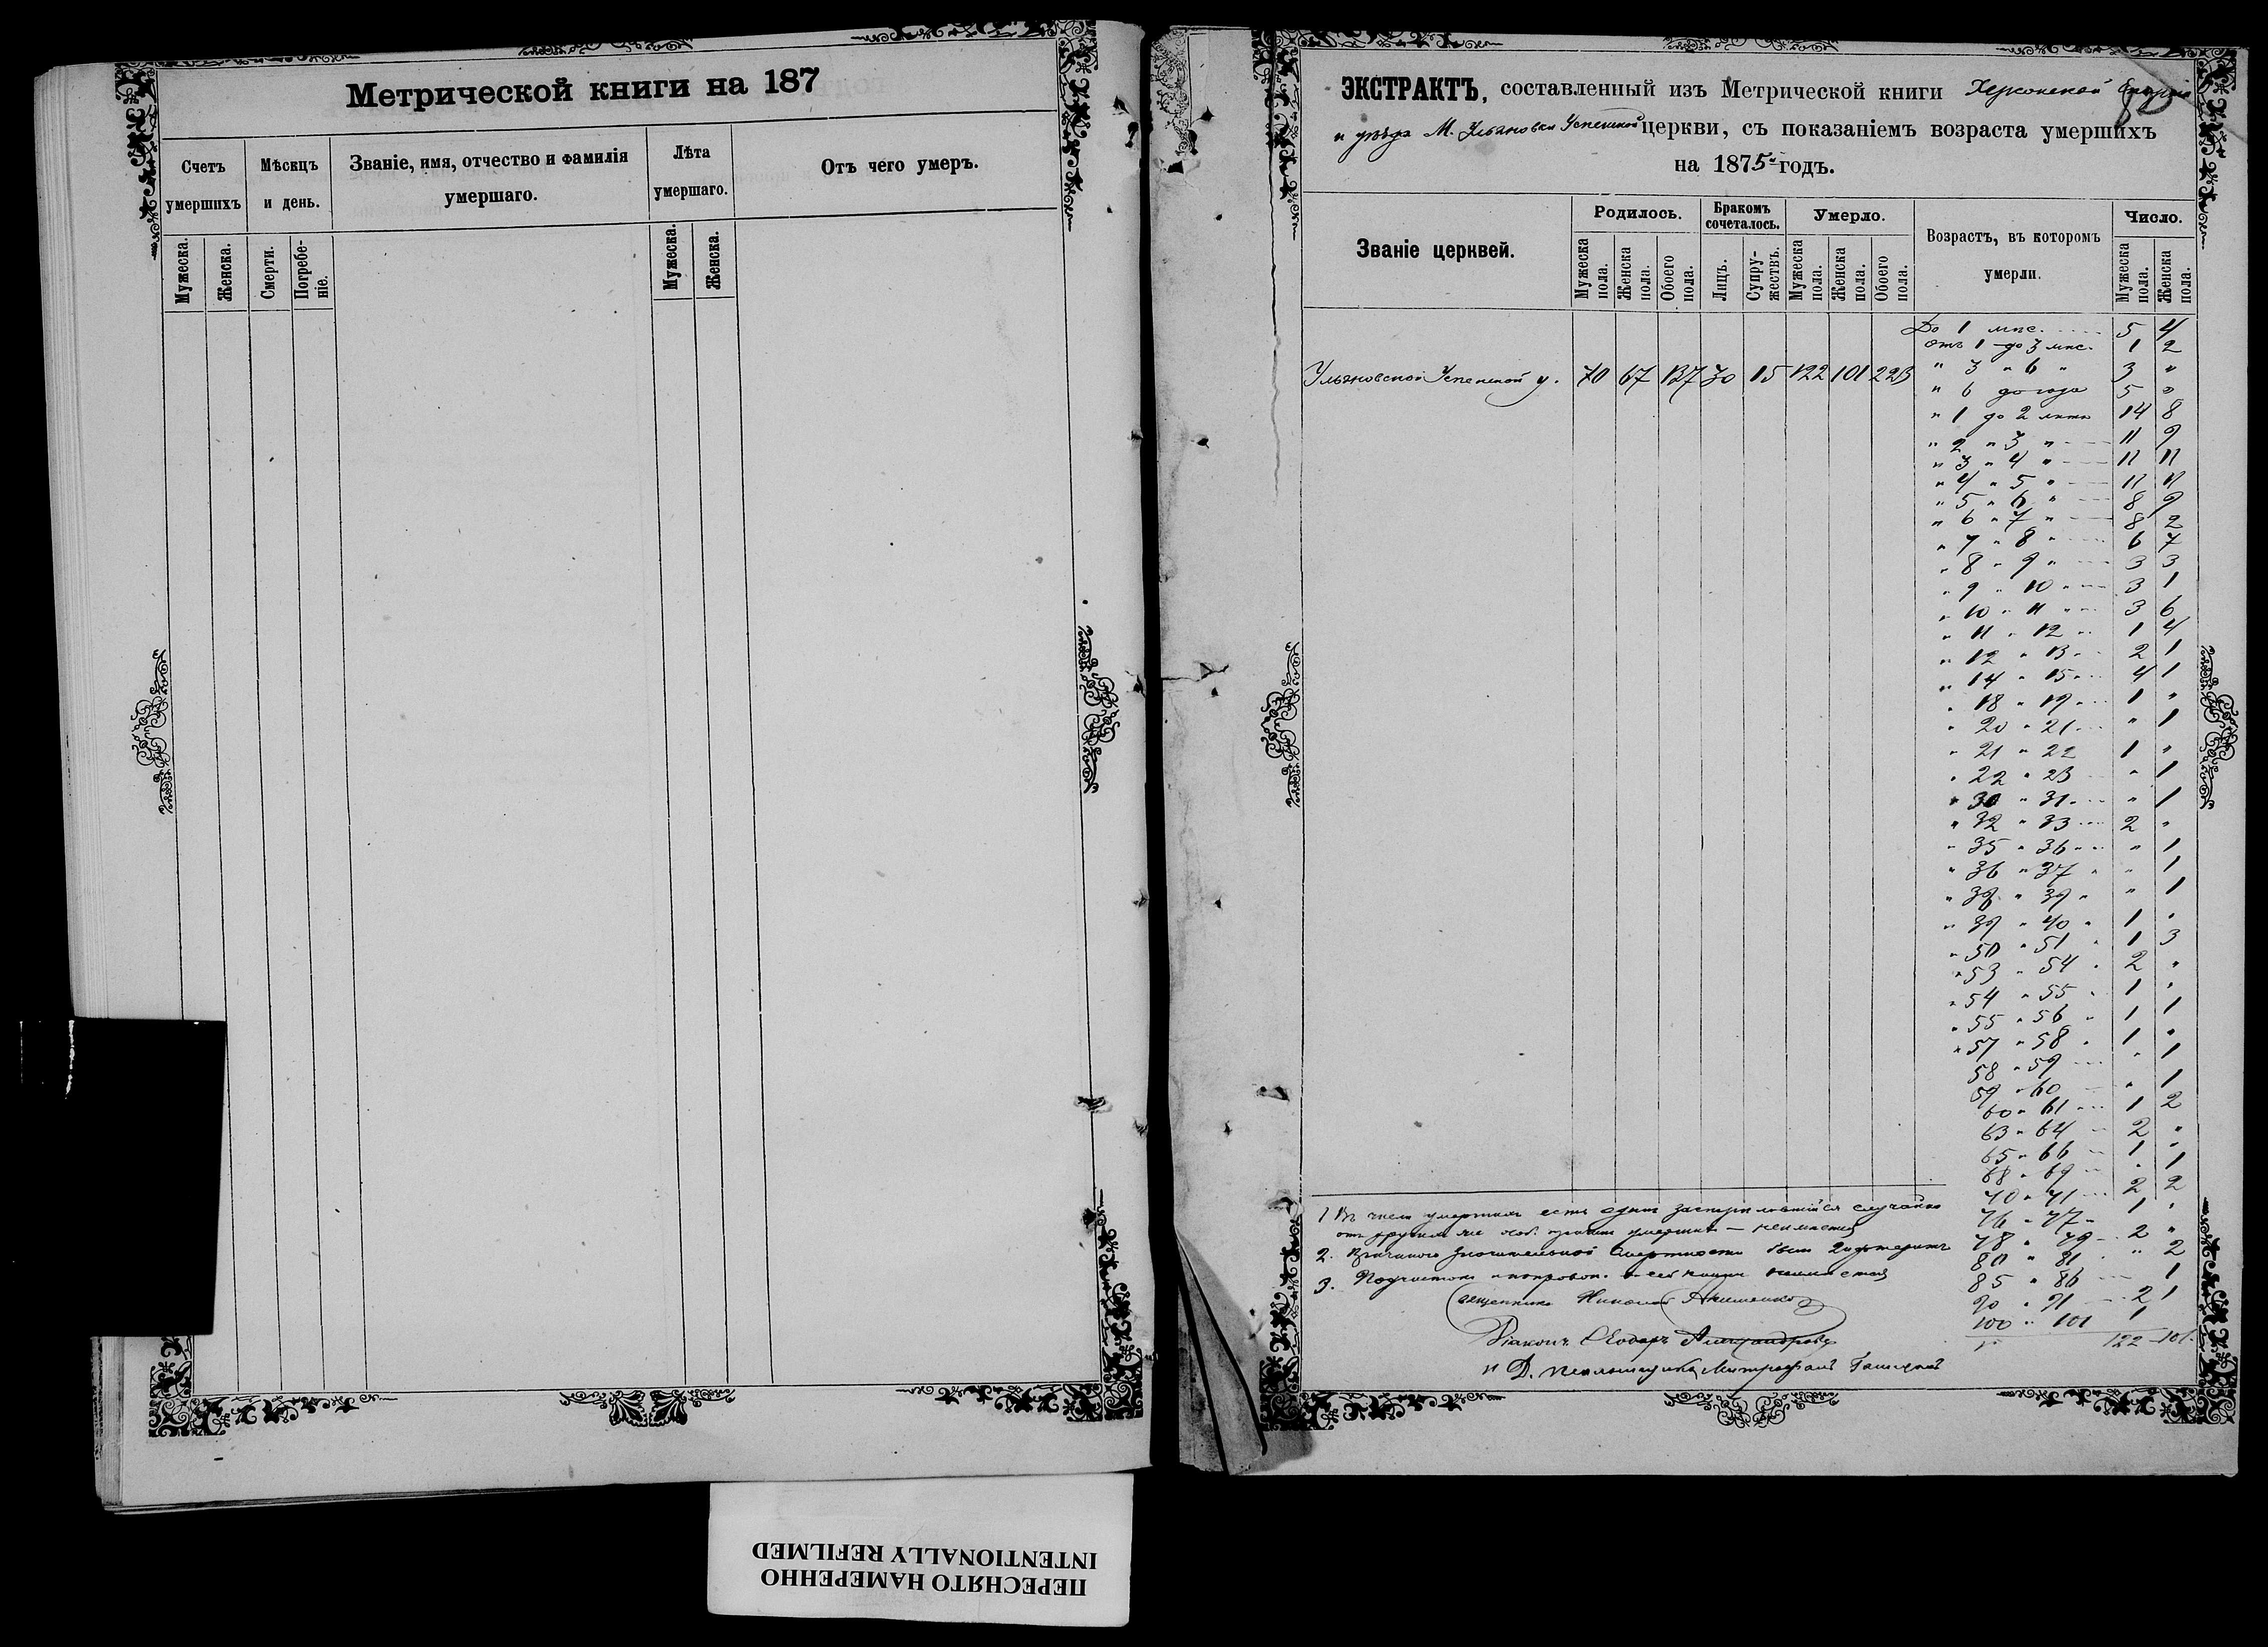 Метрической книги на 187
Счетъ умершихъ
Мѣсяцъ и день.
Званіе, имя, отчество и фамилія умершаго.
Лѣта умершаго.
Отъ чего умеръ.
Мужеска.
Женска.
Смерти.
Погребе-
ніе.
Мужеска.
Женска.
ЭКСТРАКТЪ, составленный изъ Метрической книги Херсонской Епархіи
и уѣзда М. Ульяновки Успенской церкви, съ показаніемъ возраста умершихъ
на 1875 годъ.
Званіе церквей.
Родилось.
Бракомъ сочеталось.
Умерло.
Возрастъ, въ которомъ умерли.
Число.
Мужеска пола.
Женска пола.
Обоего пола.
Лицъ.
Супру-
жествъ.
Мужеска пола.
Женска пола.
Обоего пола.
Мужеска пола.
Женска пола.
Ульяновской Успенской ц. 70 67 137 30 15 122 101 223
До 1 мѣс. 5 4
отъ 1 до 3 мѣс. 1 2
" 3 " 6 " 3 "
" 6 до года 5 "
" 1 до 2 лѣтъ 14 8
" 2 " 3 " 11 9
" 3 " 4 " 11 11
" 4 " 5 " 11 11
" 5 " 6 " 8 9
" 6 " 7 " 8 2
" 7 " 8 " 6 7
" 8 " 9 " 3 3
" 9 " 10 " 3 1
" 10 " 11 " 3 6
" 11 " 12 " 1 4
" 12 " 13 " 2 1
" 14 " 15 " 4 1
" 18 " 19 " 1 "
" 20 " 21 " 1
" 21 " 22 1 "
" 22 " 23 " 1
" 30 " 31 " 1
" 32 " 33 2 "
" 35 " 36 " 1
" 36 " 37 " " 1
" 38 " 39 " " 1
" 39 " 40 " 1 "
" 50 " 51 " 1 3
" 53 " 54 " 2 "
" 54 " 55 " 1 "
" 55 " 56 " 1 1
" 57 " 58 " 1 "
58 " 59 " 1
59 " 60 " 1
60 " 61 1 2
63 " 64 2 "
65 " 66 1 "
68 " 69 " 1
70 " 71 2 2
76 " 77 " 1 "
78 " 79 2 "
80 " 81 " 2
85 " 86 1
90 " 91 2 1
100 " 101 1
122 101.
1 Въ числѣ умершихъ есть одинъ случайно
умершихъ — неимѣется
2. Причиною значительной смертности былъ дифтеритъ
3. Подчистокъ и поправок. в сей книги неимѣется
Священникъ Николай
Діаконъ Ѳеодоръ Александровъ
И. Д. псаломщика Митрофанъ
ПЕРЕСНЯТО НАМЕРЕННО
INTENTIONALLY REFILMED